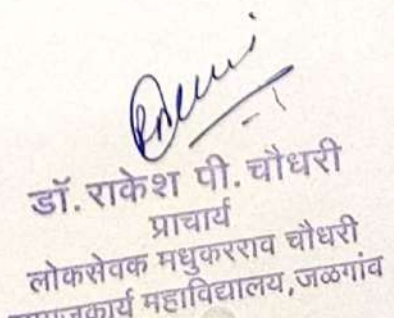 डॉ. राकेश पी. चौधरी
प्राचार्य
लोकसेवक मधुकरराव चौधरी
महाविद्यालय, जळगांव